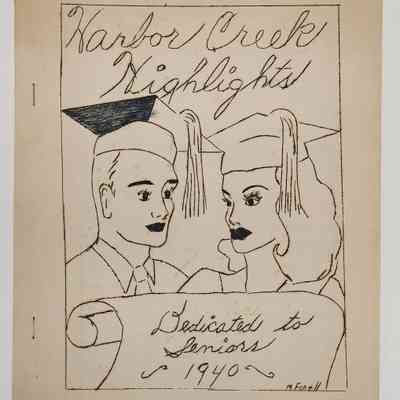 Harbor Creek
Highlights
Dedicated to
Seniors
1940